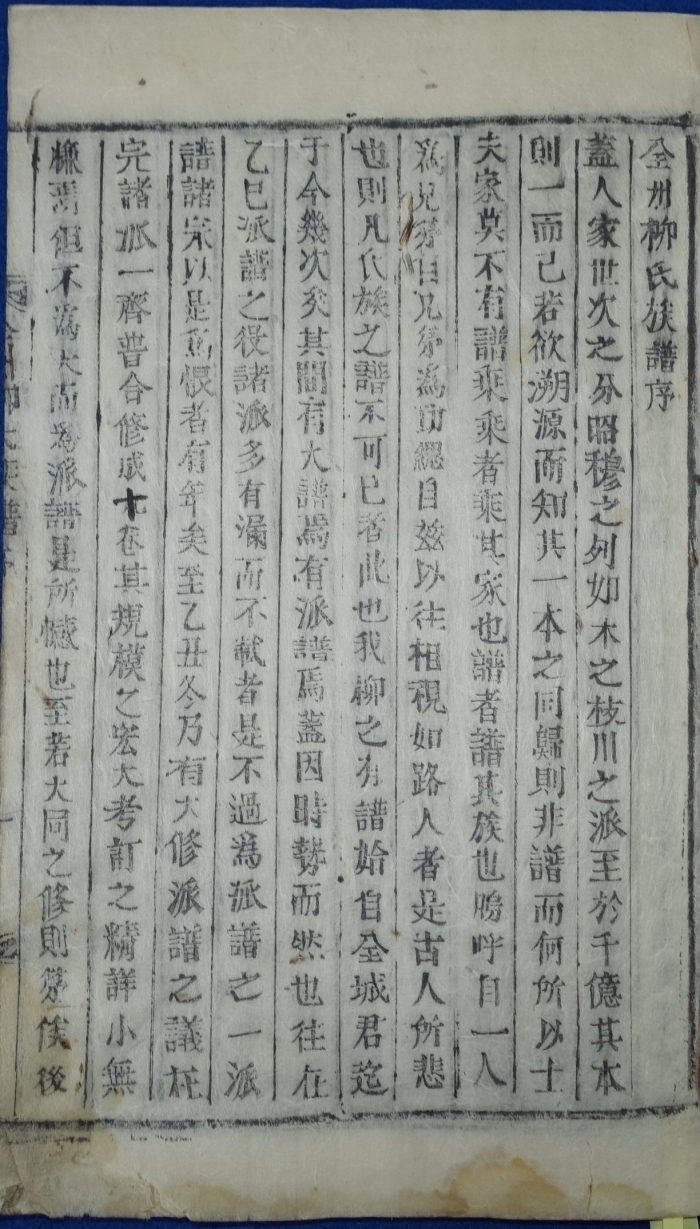 全州柳氏族譜序
蓋人家世次之分昭穆之列如木之枝川之派至於千億其本
則一而已若欲溯源而知其一本之同歸則非譜而何所以士
夫家莫不有譜乘乘者乘其家也譜者譜其族也嗚呼自一人
爲兄弟自兄弟爲功緦自玆以往相視如路人者是古人所悲
也則凡氏族之譜不可已者此也我柳之有譜始自全城君迄
于今幾次矣其間有大譜焉有派譜焉蓋因時勢而然也往在
乙巳派譜之役諸派多有漏而不載者是不過為派譜之一派
譜諸宗以是爲恨者有年矣至乙丑冬乃有大修派譜之議
完諸派一齊普合修成十卷其規模之宏大考訂之精詳小無
焉但不爲大而爲派譜是所憾也至若大同之修則第俟後